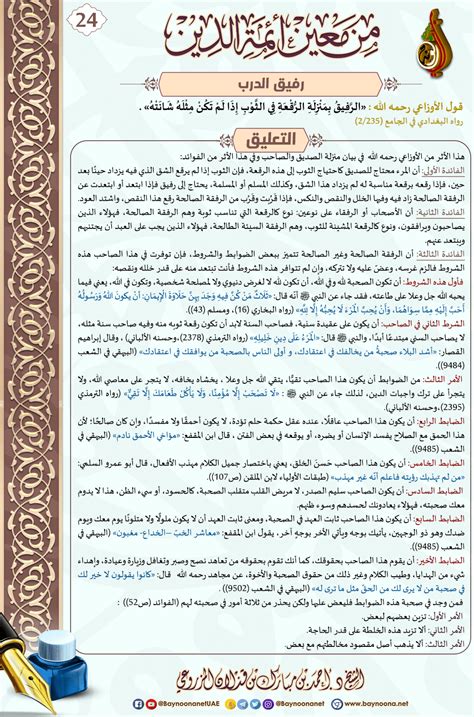 24
من معين أئمة الدين
رفيق الدرب
قول الأوزاعي رحمه الله : «الرَّفِيقُ بِمَنْزِلَةِ الرُّقْعَةِ فِي الثَّوْبِ إِذَا لَمْ تَكُنْ مِثْلَهُ شَانَتْهُ» .
رواه البغدادي في الجامع (2/235)
التعليق
هذا الأثر من الأوزاعي رحمه الله في بيان منزلة الصديق والصاحب وفي هذا الأثر من الفوائد:
الفائدة الأولى: أن المرء محتاج للصديق كاحتياج الثوب إلى هذه الرقعة، فإن الثوب إذا لم يرقع الشق الذي فيه يزداد حينًا بعد
حين، فإذا رقعه برقعة مناسبة له لم يزداد هذا الشق، وكذلك المسلم أو المسلمة، يحتاج إلى رفيق فإذا ابتعد أو ابتعدت عن
الرفقة الصالحة زاد فيه وفيها الخلل والنقص والنكس، فإذا قَرُب وقَرُبت من الرفقة الصالحة رقع هذا النقص، واشتد العود.
الفائدة الثانية: أن الأصحاب أو الرفقاء على نوعين: نوع كالرقعة التي تناسب ثوبة وهم الرفقة الصالحة، فهؤلاء الذين
يصاحبون ويرافقون، ونوع كالرقعة المشينة للثوب، وهم الرفقة السيئة الطالحة، فهؤلاء الذين يجب على العبد أن يجتنبهم
ويبتعد عنهم.
الفائدة الثالثة: أن الرفقة الصالحة وغير الصالحة تتميز ببعض الضوابط والشروط، فإن توفرت في هذا الصاحب هذه
الشروط فالزم غرسه، وعضّ عليه ولا تتركه، وإن لم تتوافر هذه الشروط فأنت تبتعد منه على قدر خلله ونقصه:
فأول هذه الشروط: أن تكون الصحبة لله وفي الله، أن تكون لله لا لغرض دنيوي ولا لمصلحة شخصية، وتكون في الله، يعني فيما
يحبه الله جل وعلا على طاعته، فقد جاء عن النبي ﷺ أنه قال: «ثَلَاثٌ مَنْ كُنَّ فِيهِ وَجَدَ بِهِنَّ حَلَاوَةَ الْإِيمَانِ: أَنْ يَكُونَ اللهُ وَرَسُولُهُ
أَحَبَّ إِلَيْهِ مِمَّا سِوَاهُمَا، وَأَنْ يُحِبَّ الْمَرْءَ لَا يُحِبُّهُ إِلَّا لِلَّهِ» (رواه البخاري (16)، ومسلم (43)).
الشرط الثاني في الصاحب: أن يكون على عقيدة سنية، فصاحب السنة لابد أن تكون رقعة ثوبه منه وفيه صاحب سنة مثله،
لا يصاحب السني مبتدعًا أبدًا، والنبي ﷺ قال: «الْمَرْءُ عَلَى دِينِ خَلِيلِهِ» (رواه الترمذي (2378)،وحسنه الألباني) ، وقال إبراهيم
القصار: «أشد البلاء صحبة من يخالفك في اعتقادك، و أولى الناس بالصحبة من يوافقك في اعتقادك» (البيهقي في الشعب
(9484)).
الأمر الثالث: من الضوابط أن يكون هذا الصاحب تقيًّا، يتقي الله جل وعلا ، يخشاه يخافه، لا يتجرأ على معاصي الله، ولا
يتجرأ على ترك واجبات الدين، لذلك جاء عن النبي ﷺ : «لَا تَصْحَبْ إِلَّا مُؤْمِنًا، وَلَا يَأْكُلْ طَعَامَكَ إِلَّا تَقِيٌّ» (رواه الترمذي
(2395)،وحسنه الألباني).
الضابط الرابع: أن يكون هذا الصاحب عاقلًا، عنده عقل حكمة حلم تؤدة، لا يكون أحمقًا ولا مفسدًا، وإن كان صالحًا! لأن
هذا الحمق مع الصلاح يفسد الإنسان أو يضره، أو يوقعه في بعض الفتن ، قال ابن المقفع: «مؤاخي الأحمق نادم» (البيهقي في
الشعب (9485)).
الضابط الخامس: أن يكون هذا الصاحب حَسَنَ الخلق، يعني باختصار جميل الكلام مهذب الأفعال، قال أبو عمرو السلمي:
«من لم تهذبك رؤيته فاعلم أنه غير مهذب» (طبقات الأولياء لابن الملقن (ص107)).
الضابط السادس: أن يكون الصاحب سليم الصدر، لا مريض القلب متقلب الصحبة، كالحسود، أو سيء الظن، هذا لا يدوم
معك صحبته، فهؤلاء يعادونك لحسدهم وسوء ظنهم.
الضابط السابع: أن يكون هذا الصاحب ثابت العهد في الصحبة، ومعنى ثابت العهد أن لا يكون ملولًا ولا متلونًا يوم معك ويوم
ضدك وهو ذو الوجهين، يأتيك بوجه ويأتي الآخر بوجه، يقول ابن المقفع: «معاشر الخبّ –الخداع- مغبون» (البيهقي في الشعب
(9485)).
الضابط الأخير: أن يقوم هذا الصاحب بحقوقك، كما أنك تقوم بحقوقه من تعاهد نصح وصبر وتغافل وزيارة وعيادة وإهداء
شيء من الهدايا، وطيب الكلام وغير ذلك من حقوق الصحبة والأخوة، عن مجاهد رحمه الله قال: «كانوا يقولون لا خير لك
في صحبة من لا يرى لك من الحق مثل ما ترى له» (البيهقي في الشعب (9502)).
فمن وجد في صحبة هذه الضوابط فليعض عليها ولكن يحذر من ثلاثة أمور في صحبته لهم (الفوائد (ص52)) :
الأمر الأول: تزين بعضهم لبعض.
الأمر الثاني: ألا تزيد هذه الخلطة على قدر الحاجة.
الأمر الثالث: ألا يذهب أصل مقصود مخالطتهم بعضهم لبعض.
الشيخ د. أحمد بن مبارك بن قذلان المزروعي
@BaynoonanetUAE @Baynoonanet www.baynoona.net